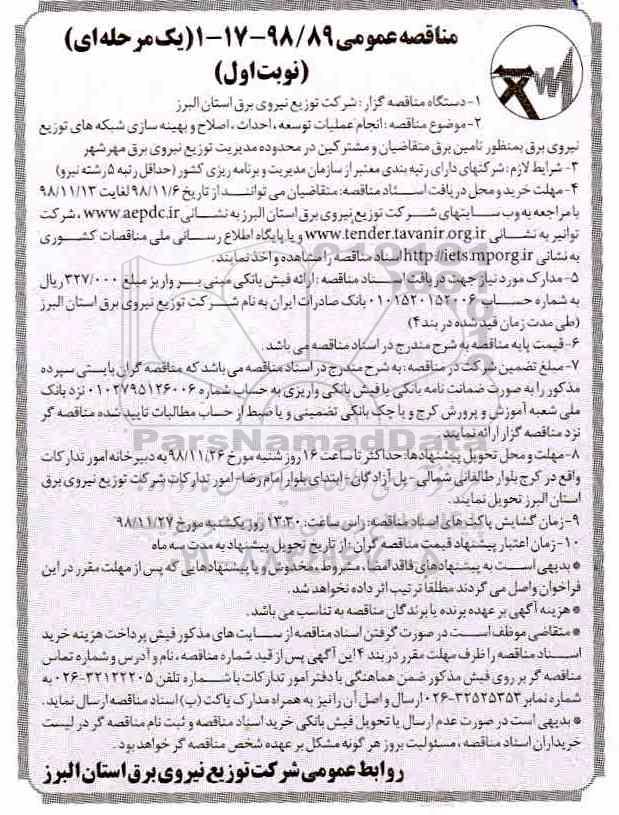 مناقصه عمومی ۹۸/۸۹-۱۷-۱ (یک مرحله ای)
(نوبت اول)
۱- دستگاه مناقصه گزار: شرکت توزیع نیروی برق استان البرز
۲- موضوع مناقصه: انجام عملیات توسعه، احداث، اصلاح و بهینه سازی شبکه های توزیع
نیروی برق بمنظور تامین برق متقاضیان و مشترکین در محدوده مدیریت توزیع نیروی برق مهرشهر
۳- شرایط لازم: شرکتهای دارای رتبه بندی معتبر از سازمان مدیریت و برنامه ریزی کشور (حداقل رتبه ۵ رشته نیرو)
۴- مهلت خرید و محل دریافت اسناد مناقصه: متقاضیان می توانند از تاریخ ۹۸/۱۱/۶ لغایت ۹۸/۱۱/۱۳
با مراجعه به وب سایتهای شرکت توزیع نیروی برق استان البرز به نشانی www.aepdc.ir، شرکت
توانیر به نشانی www.tender.tavanir.org.ir و یا پایگاه اطلاع رسانی ملی مناقصات کشوری
به نشانی http://iets.mporg.ir اسناد مناقصه را مشاهده و اخذ نمایند.
۵- مدارک مورد نیاز جهت دریافت اسناد مناقصه: ارائه فیش بانکی مبنی بر واریز مبلغ ۳۲۷/۰۰۰ ریال
به شماره حساب ۰۱۰۱۵۲۰۱۵۲۰۰۶ بانک صادرات ایران به نام شرکت توزیع نیروی برق استان البرز
(طی مدت زمان قید شده در بند ۴)
۶- قیمت پایه مناقصه به شرح مندرج در اسناد مناقصه می باشد.
۷- مبلغ تضمین شرکت در مناقصه: به شرح مندرج در اسناد مناقصه می باشد که مناقصه گران بایستی سپرده
مذکور را به صورت ضمانت نامه بانکی یا فیش بانکی واریزی به حساب شماره ۰۱۰۲۷۹۵۱۲۶۰۰۶ نزد بانک
ملی شعبه آموزش و پرورش کرج و یا چک بانکی تضمینی و یا ضبط از حساب مطالبات تایید شده مناقصه گر
نزد مناقصه گزار ارائه نمایند.
۸- مهلت و محل تحویل پیشنهادها: حداکثر تا ساعت ۱۶ روز شنبه مورخ ۹۸/۱۱/۲۶ به دبیرخانه امور تدارکات
واقع در کرج بلوار طالقانی شمالی- پل آزادگان- ابتدای بلوار امام رضا- امور تدارکات شرکت توزیع نیروی برق
استان البرز تحویل نمایند.
۹- زمان گشایش پاکت های اسناد مناقصه: راس ساعت: ۱۳:۳۰ روز یکشنبه مورخ ۹۸/۱۱/۲۷
۱۰- زمان اعتبار پیشنهاد قیمت مناقصه گران: از تاریخ تحویل پیشنهاد به مدت سه ماه
* بدیهی است به پیشنهادهای فاقد امضا، مشروط، مخدوش و یا پیشنهادهایی که پس از مهلت مقرر در این
فراخوان واصل می گردند مطلقا ترتیب اثر داده نخواهد شد.
* هزینه آگهی بر عهده برنده یا برندگان مناقصه به تناسب می باشد.
* متقاضی موظف است در صورت گرفتن اسناد مناقصه از سایت های مذکور فیش پرداخت هزینه خرید
اسناد مناقصه را ظرف مهلت مقرر در بند ۴ این آگهی پس از قید شماره مناقصه، نام و آدرس و شماره تماس
مناقصه گر بر روی فیش مذکور ضمن هماهنگی با دفتر امور تدارکات با شماره تلفن ۳۲۱۲۲۲۰۵-۰۲۶ به
شماره نمابر ۳۲۵۲۵۳۵۳-۰۲۶ ارسال و اصل آن را نیز به همراه مدارک پاکت (ب) اسناد مناقصه ارسال نماید.
* بدیهی است در صورت عدم ارسال یا تحویل فیش بانکی خرید اسناد مناقصه و ثبت نام مناقصه گر در لیست
خریداران اسناد مناقصه، مسئولیت بروز هر گونه مشکل بر عهده شخص مناقصه گر خواهد بود.
روابط عمومی شرکت توزیع نیروی برق استان البرز
ParsNamadData